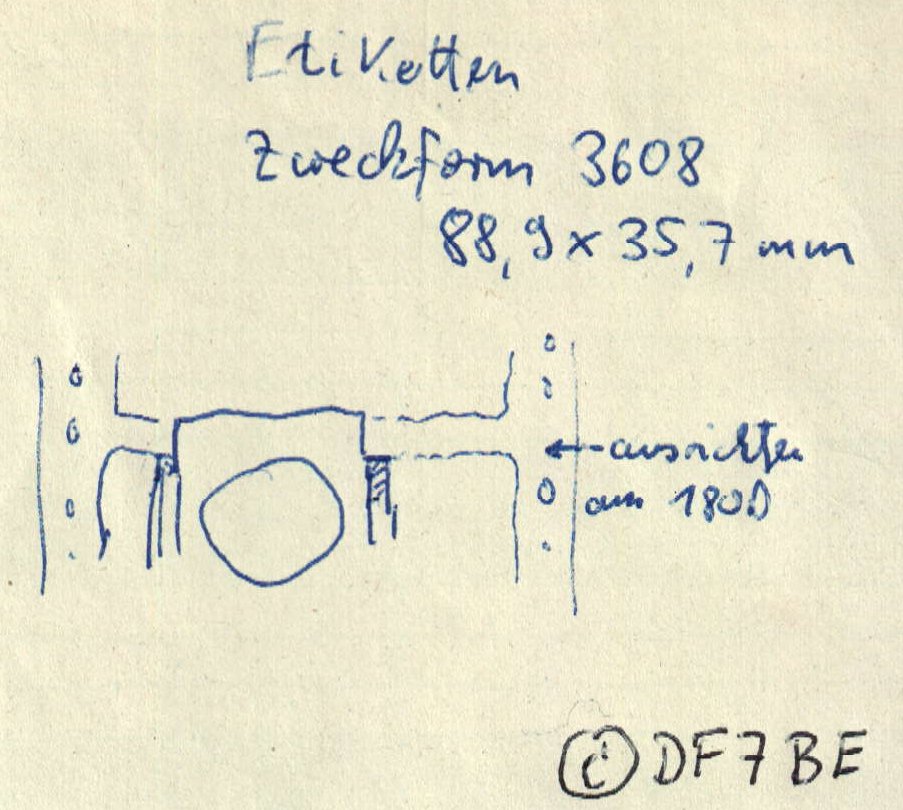 Etiketten
Zweckform 3608
88,9 x 35,7 mm
← ausrichten
am 180D
© DF7BE